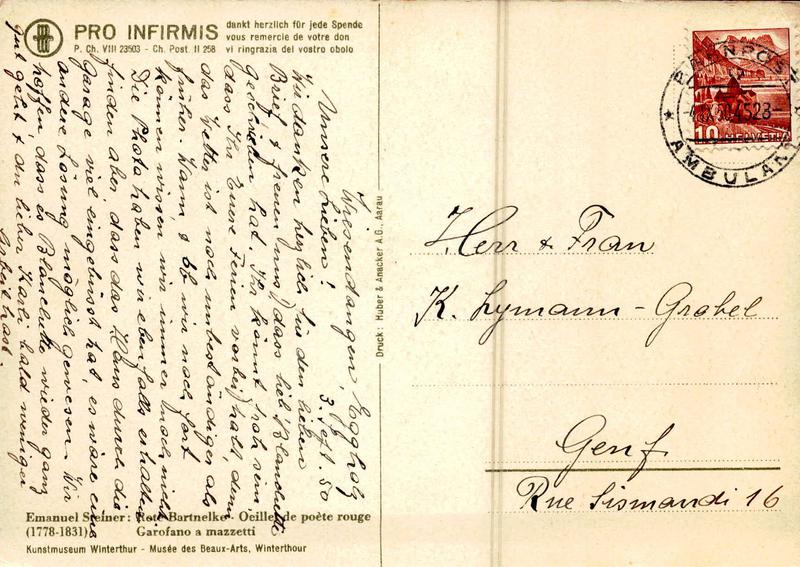 PRO INFIRMIS
P. Ch. VIII 23503 - Ch. Post. II 258
dankt herzlich für jede Spende
vous remercie de votre don
vi ringrazia del vostro obolo
Wiesendangen, Eggholz
3. Sept. 50
Unsere Lieben!
Wir danken herzlich für den lieben
Brief, & freuen uns, dass lieb Blanchette
geschrieben hat. Ihr könnt froh sein
dass Ihr Euere Ferien vorbei habt, denn
das Wetter ist noch unbeständiger als
früher. Wann & ob wir noch fort
können wissen wir immer noch nicht.
Die Photo haben wir ebenfalls erhalten,
finden aber, dass das Haus durch die
Garage viel eingebüsst hat, es wäre eine
andere Lösung möglich gewesen. Wir
hoffen dass es Blanchette wieder ganz
gut geht & du lieber Karli bald weniger
Arbeit hast.
Emanuel Steiner: Rote Bartnelke - Oeillet de poète rouge
(1778-1831) Garofano a mazzetti
Kunstmuseum Winterthur - Musée des Beaux-Arts, Winterthour
Druck: Huber & Anacker A.G., Aarau
BAHNPOST
AMBULANT
10 HELVETIA
Herr & Frau
K. Lymann-Grabel
Genf
Rue Sismondi 16